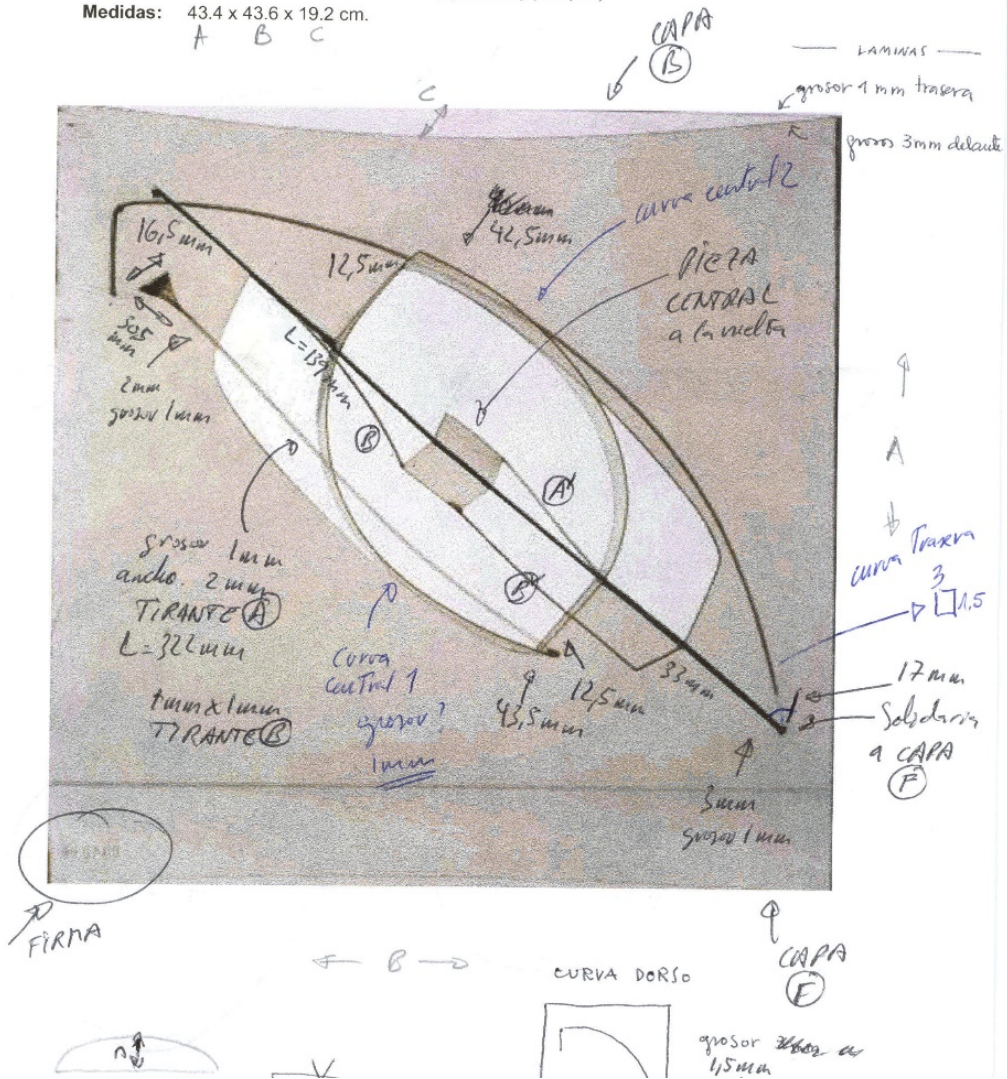 Medidas: 43.4 x 43.6 x 19.2 cm.
A B C
CAPA
B
LAMINAS
grosor 1 mm trasera
grosor 3mm delante
C
curva central 2
42,5mm
16,5mm
12,5mm
PIEZA
CENTRAL
a la vuelta
L=139mm
mm
2mm
grosor 1mm
B
A
A
B
grosor 1mm
ancho. 2mm
TIRANTE A
L=322mm
1mm x 1mm
TIRANTE B
Curva
central 1
grosor?
1mm
43,5mm
12,5mm
33mm
curva Trasera
3
1,5
17mm
Solidaria
a CAPA
F
3mm
grosor 1mm
FIRMA
B
CAPA
F
CURVA DORSO
grosor
1,5mm